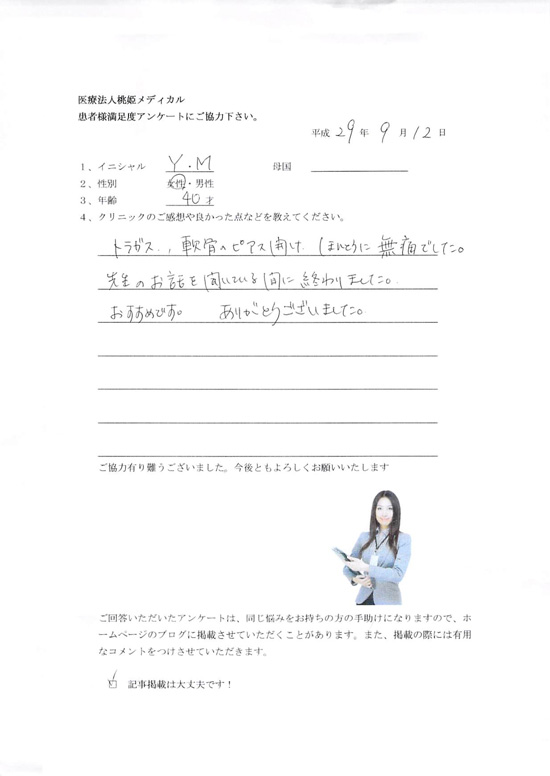 医療法人桃姫メディカル
患者様満足度アンケートにご協力下さい。
平成 29 年 9 月 12 日
1、イニシャル Y.M 母国
2、性別 女性・男性
3、年齢 40 才
4、クリニックのご感想や良かった点などを教えてください。
トラガス、軟骨のピアス開け、ほんとうに無痛でした。
先生のお話を聞いている間に終わりました。
おすすめです。 ありがとうございました。
ご協力有り難うございました。今後ともよろしくお願いいたします
ご回答いただいたアンケートは、同じ悩みをお持ちの方の手助けになりますので、ホ
ームページのブログに掲載させていただくことがあります。また、掲載の際には有用
なコメントをつけさせていただきます。
記事掲載は大丈夫です！